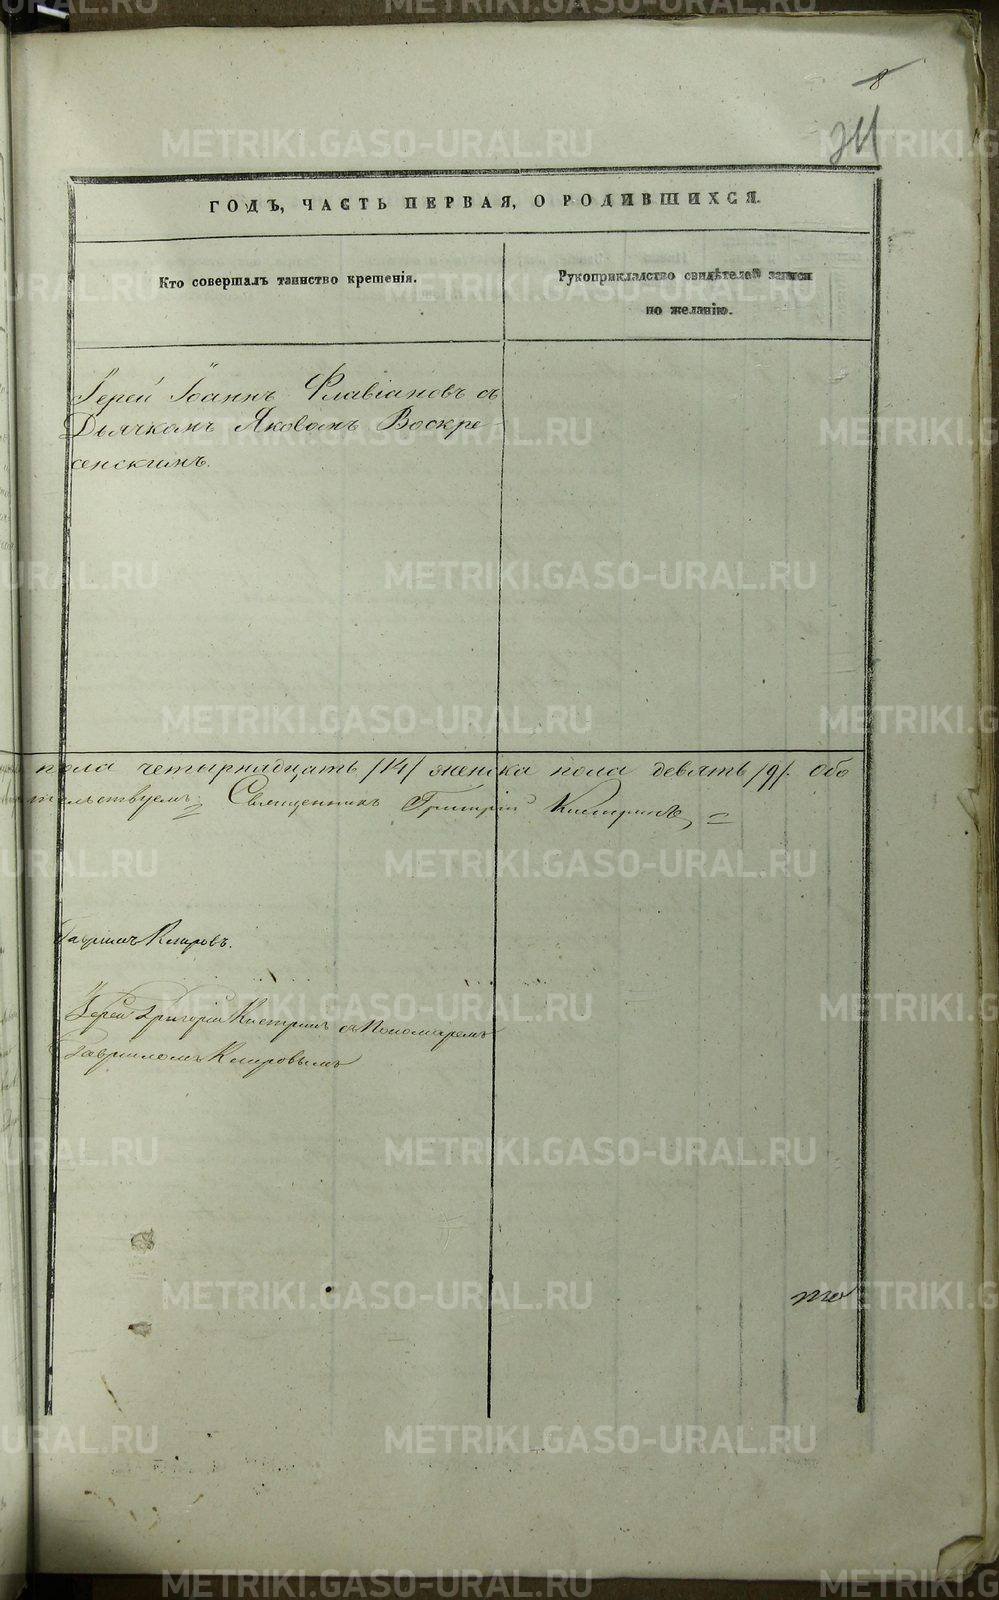 8
211
ГОДЪ, ЧАСТЬ ПЕРВАЯ, О РОДИВШИХСЯ.
Кто совершалъ таинство крещенія.
Рукоприкладство свидѣтелей записи
по желанію.
Іерей Іоаннъ Флавіановъ съ
Дьячкомъ Яковомъ Воскре-
сенскимъ.
пола четырнадцать /14/ женска пола девять /9/. Обо
тельствуемъ Священникъ Григорій
Гавриилъ Кипровъ.
Іерей Григорій съ Пономаремъ
Гавриломъ Кипровымъ
METRIKI.GASO-URAL.RU